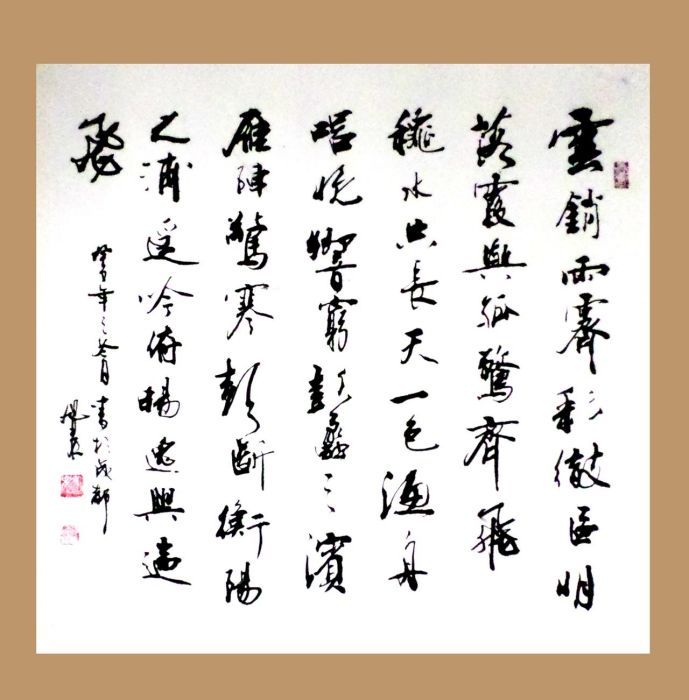 雲銷雨霽彩徹區明
落霞與孤鶩齊飛
穐水共長天一色漁舟
唱晚響窮彭蠡之濱
雁陣驚寒聲斷衡陽
之浦遥吟俯暢逸興遄
飛
年之月書於成都